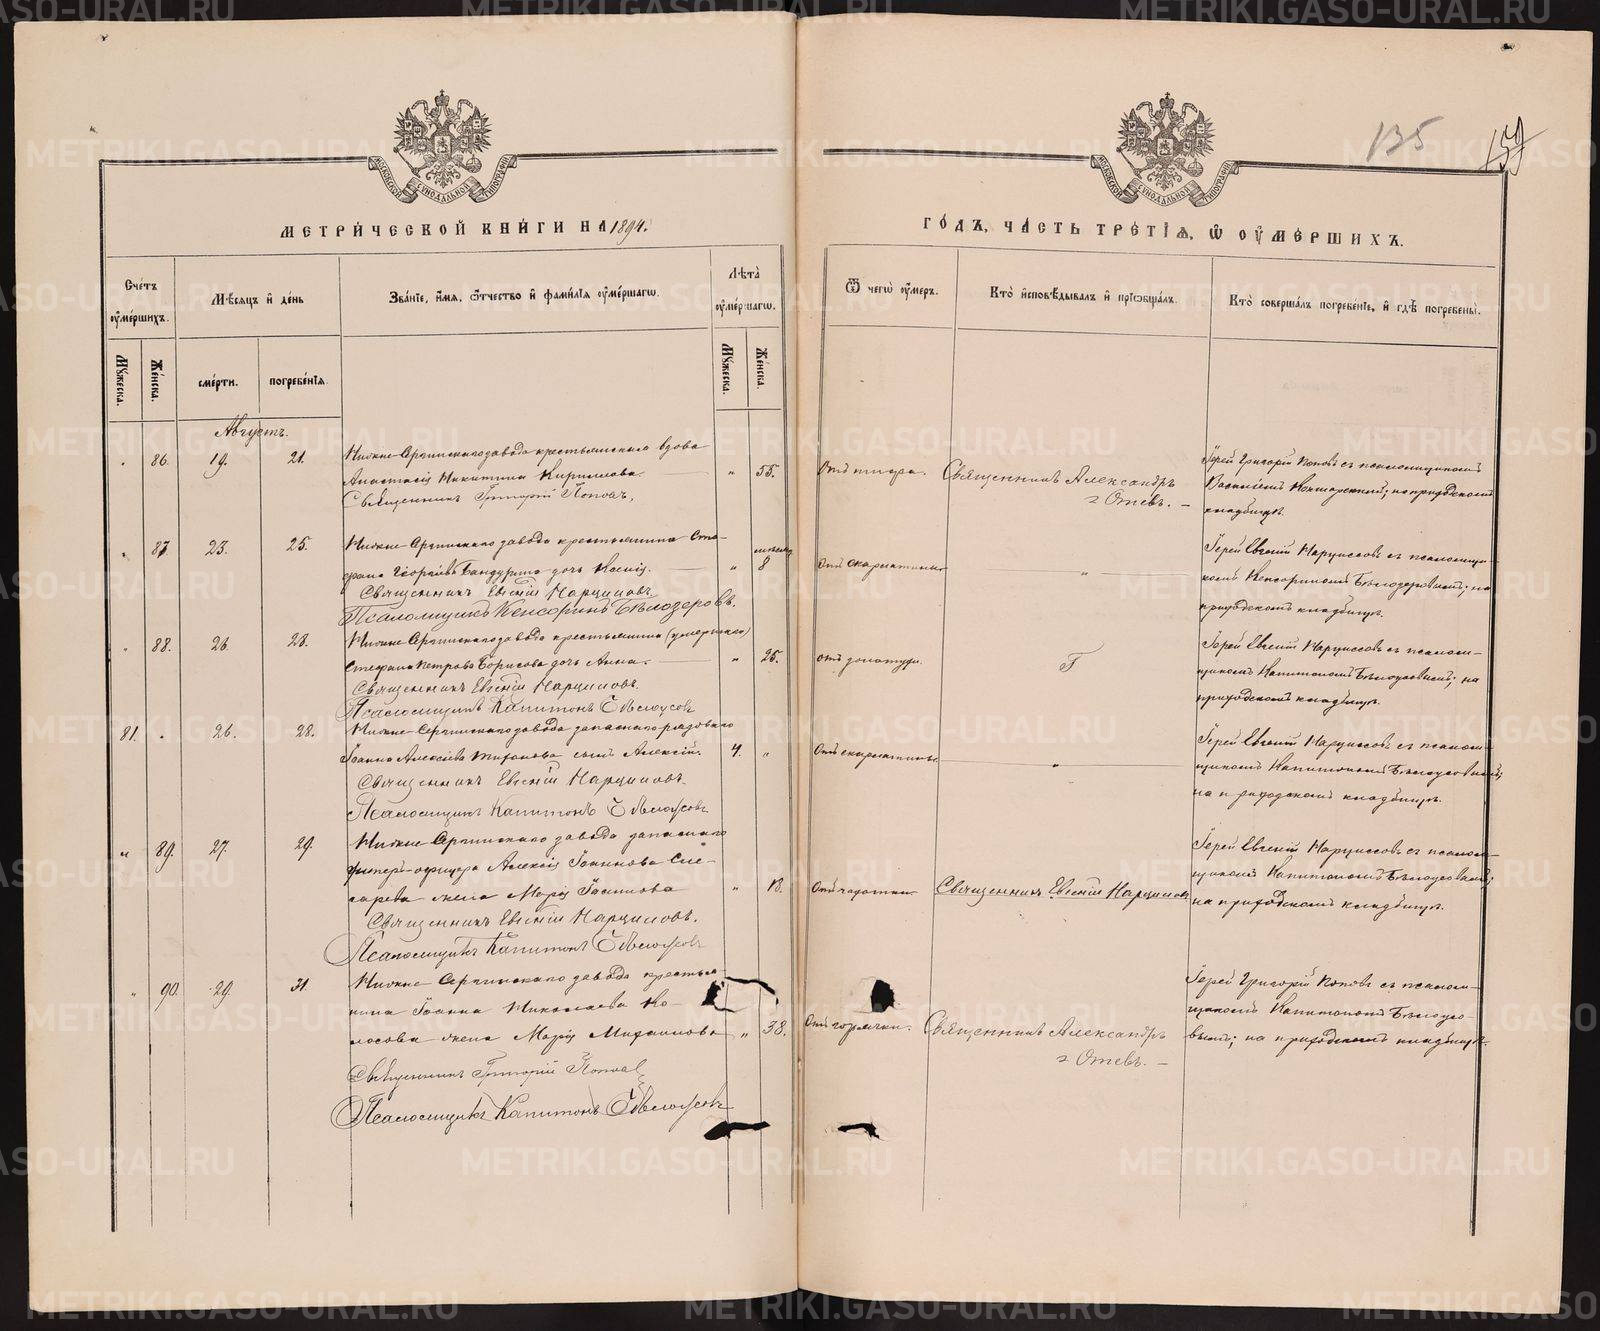 135
159
МОСКОВСКОЙ СѴНОДАЛЬНОЙ ТИПОГРАФІИ
МОСКОВСКОЙ СѴНОДАЛЬНОЙ ТИПОГРАФІИ
МЕТРИ́ЧЕСКОЙ КНИ́ГИ НА 1894.
ГО́ДЪ, ЧА́СТЬ ТРЕ́ТІѦ, Ѽ ОУ҆МЕ́РШИХЪ.
Сче́тъ оу҆ме́ршихъ.
Мѣ́сяцъ и҆ де́нь
Зва́ніе, и҆́мя, ѻ҆́тчество и҆ фами́лія оу҆ме́ршагѡ.
Лѣ́та оу҆ме́ршагѡ.
Ѿ чегѡ̀ оу҆́меръ.
Кто̀ и҆сповѣ́дывалъ и҆ прїѡбща́лъ.
Кто̀ соверша́лъ погребе́ніе, и҆ гдѣ̀ погребены̀.
Мꙋ́жеска.
Же́нска.
сме́рти.
погребе́нія.
Мꙋ́жеска.
Же́нска.
Августъ.
86. 19. 21. Нижне-Сергинскаго завода крестьянская вдова
Анастасія Никитина Кириллова. " 55.
Священникъ Григорій Поповъ.
Священникъ Александръ
Іерей Григорій Поповъ съ псаломщикомъ
на приходскомъ
кладбищѣ.
87. 23. 25. Нижне-Сергинскаго завода крестьянина Сте-
фана Георгіева Бандурина дочь Ксенія. " 8
Священникъ Евгеній Нарциссовъ.
Псаломщикъ Кенсоринъ Бѣлозеровъ.
Отъ скарлатины. "
Іерей Евгеній Нарциссовъ съ псаломщи-
комъ Кенсориномъ Бѣлозеровымъ; на
приходскомъ кладбищѣ.
88. 26. 28. Нижне-Сергинскаго завода крестьянина (умершаго)
Стефана Петрова Борисова дочь Анна. " 25.
Священникъ Евгеній Нарциссовъ.
Псаломщикъ Капитонъ Бѣлоусовъ
отъ золотухи.
Іерей Евгеній Нарциссовъ съ псалом-
щикомъ Капитономъ Бѣлоусовымъ; на
приходскомъ кладбищѣ.
81. 26. 28. Нижне-Сергинскаго завода запаснаго рядоваго
Іоанна Алексѣева сынъ Алексій. 4. "
Священникъ Евгеній Нарциссовъ.
Псаломщикъ Капитонъ Бѣлоусовъ
Отъ скарлатины. "
Іерей Евгеній Нарциссовъ съ псалом-
щикомъ Капитономъ Бѣлоусовымъ;
на приходскомъ кладбищѣ.
" 89. 27. 29. Нижне-Сергинскаго завода запаснаго
унтеръ-офицера Алексія Іоаннова Сле-
сарева жена Марія Іоаннова " 18.
Священникъ Евгеній Нарциссовъ.
Псаломщикъ Капитонъ Бѣлоусовъ
Отъ чахотки. Священникъ Евгеній Нарциссовъ
Іерей Евгеній Нарциссовъ съ псалом-
щикомъ Капитономъ Бѣлоусовымъ;
на приходскомъ кладбищѣ.
" 90. 29. 31. Нижне-Сергинскаго завода крестья-
нина Іоанна Николаева Ко-
лосова жена Марія Михаилова " 38.
Священникъ Григорій Поповъ
Псаломщикъ Капитонъ Бѣлоусовъ
Отъ горячки. Священникъ Александръ
Іерей Григорій Поповъ съ псалом-
щикомъ Капитономъ Бѣлоусо-
вымъ; на приходскомъ кладбищѣ.
METRIKI.GASO-URAL.RU